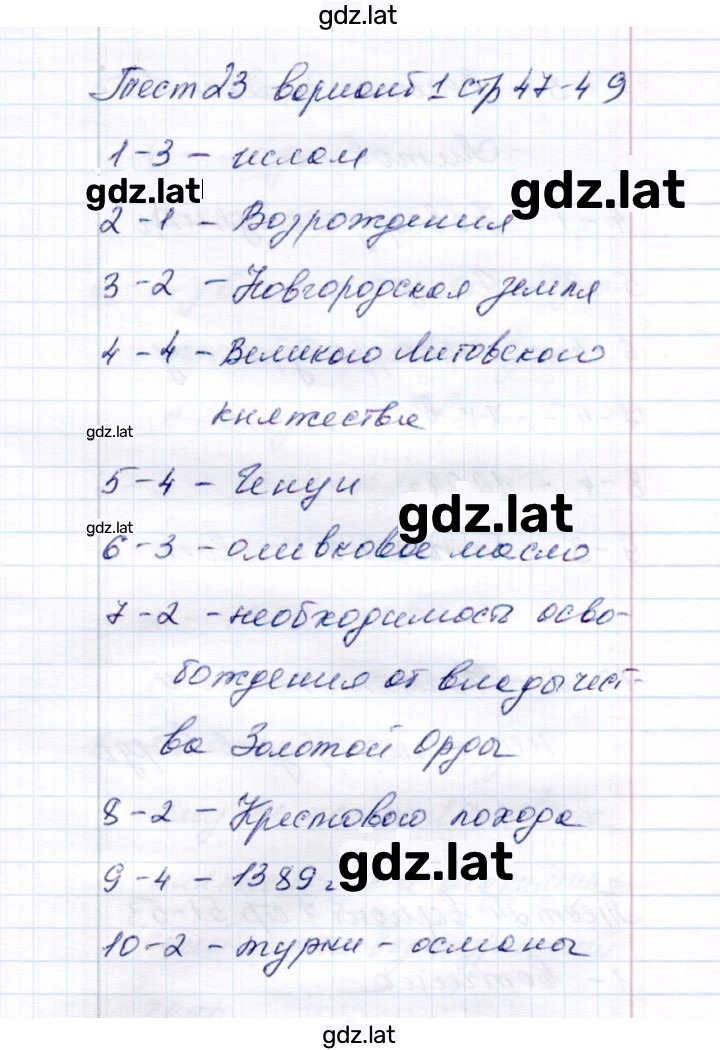 gdz.lat
Тест 23 вариант 1 стр 47-49
1-3 - ислам
gdz.lat
gdz.lat
2-1 - Возрождения
3-2 - Новгородская земля
4-4 - Великого Литовского
княжества
gdz.lat
5-4 - Генуи
gdz.lat
gdz.lat
6-3 - оливковое масло
7-2 - необходимость осво-
бождения от владычест-
ва Золотой Орды
8-2 - Крестового похода
gdz.lat
9-4 - 1389 г
10-2 - турки - османы
gdz.lat